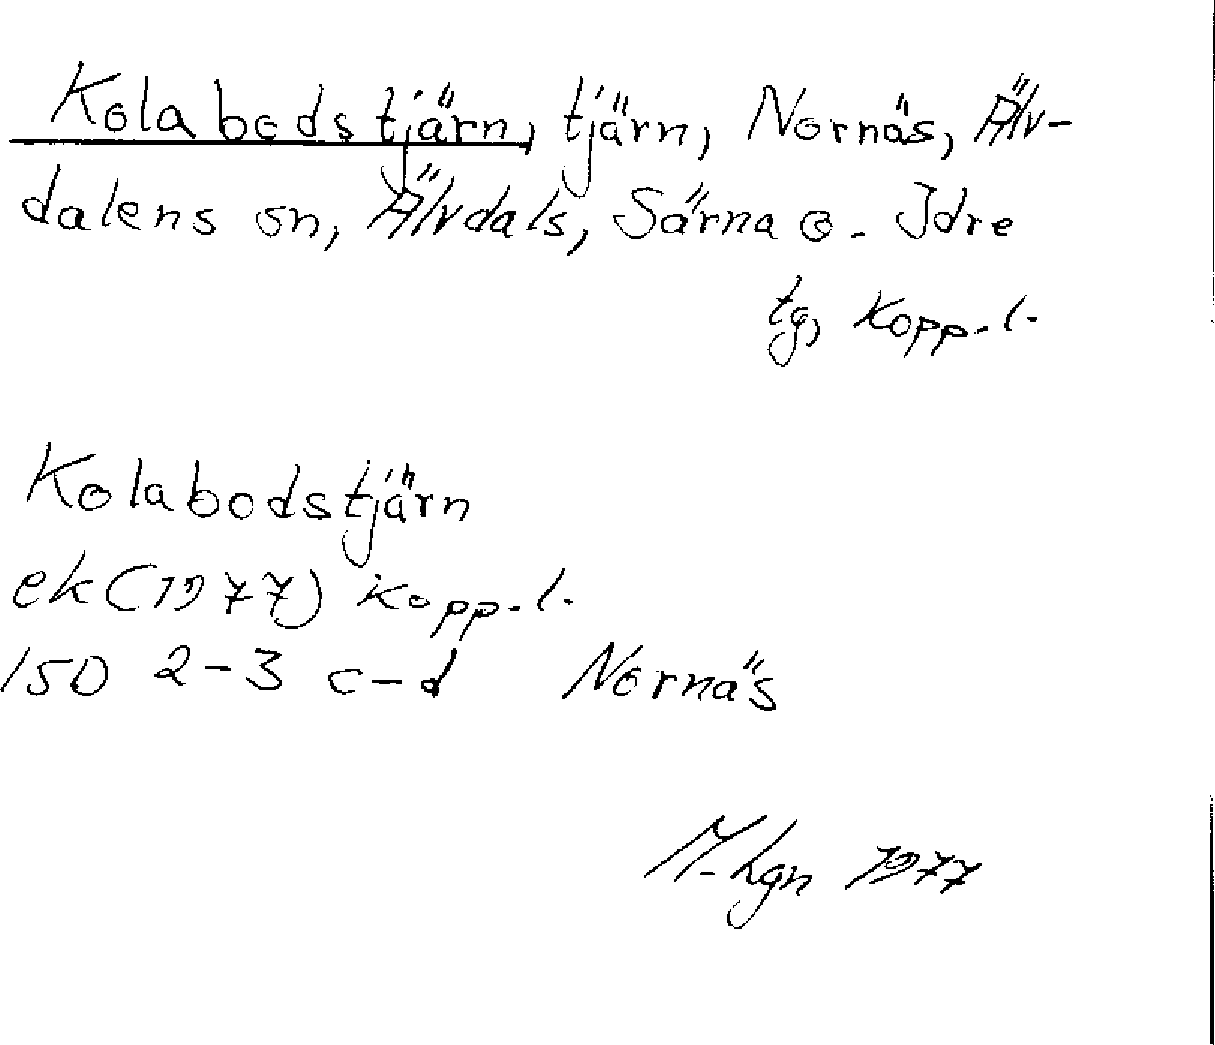 Kolabodstjärn, tjärn, Nornäs, Älv-
dalens sn, Älvdals, Särna o. Idre
tg, Kopp. l.
Kolabodstjärn
ek (1977) Kopp. l.
15D 2-3 c-d Nornäs
1977